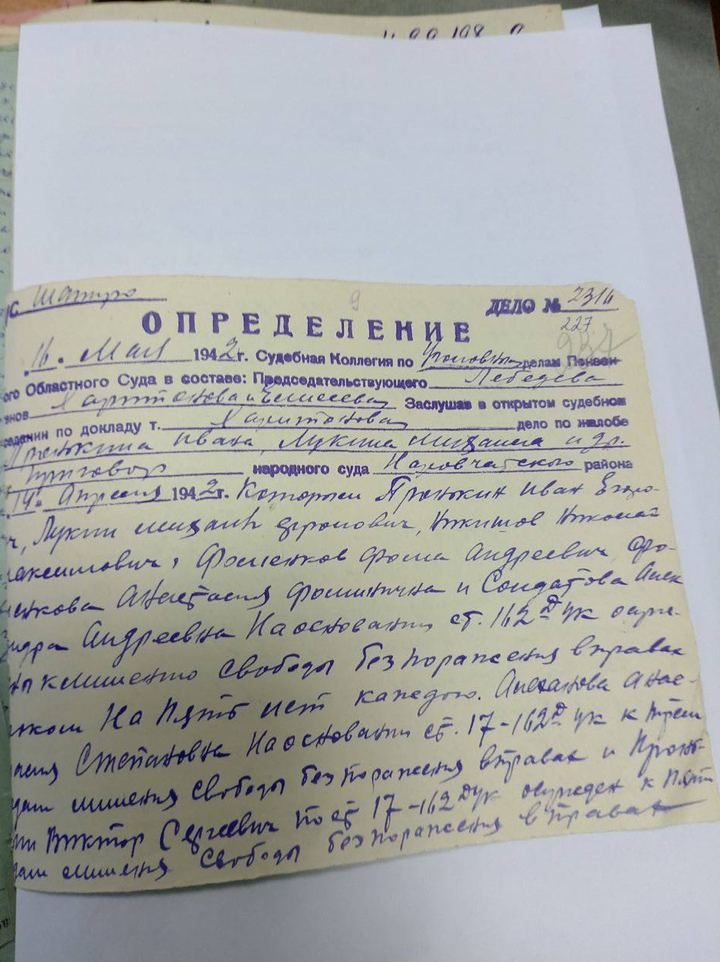 Шапиро
9
ДЕЛО № 2316
227
ОПРЕДЕЛЕНИЕ
16. Мая 1942 г. Судебная Коллегия по Уголовным делам Пензен-
ого Областного Суда в составе: Председательствующего Лебедева
нов Харитонова и Заслушав в открытом судебном
седании по докладу т. Харитонова дело по жалобе
Пронькина Ивана, Лукина Михаила и др.
приговор народного суда Наровчатского района
14. Апреля 1942 г. Которым Пронькин Иван Егоро-
ч, Лукин Михаил Николай
аксимович, Фоменков Фома Андреевич Фо-
менкова Анастасия Фоминична и Солдатова Алек
ндра Андреевна На основании ст. 162 д УК осуж-
ны к лишению свободы без поражения в правах
На пять лет каждого. Анас-
асия Степановна На основании ст. 17-162 д УК к трем
дам лишения свободы без поражения в правах и Пронь-
ин Виктор Сергеевич по ст 17-162 д УК осужден к пяти
дам лишения свободы без поражения в правах